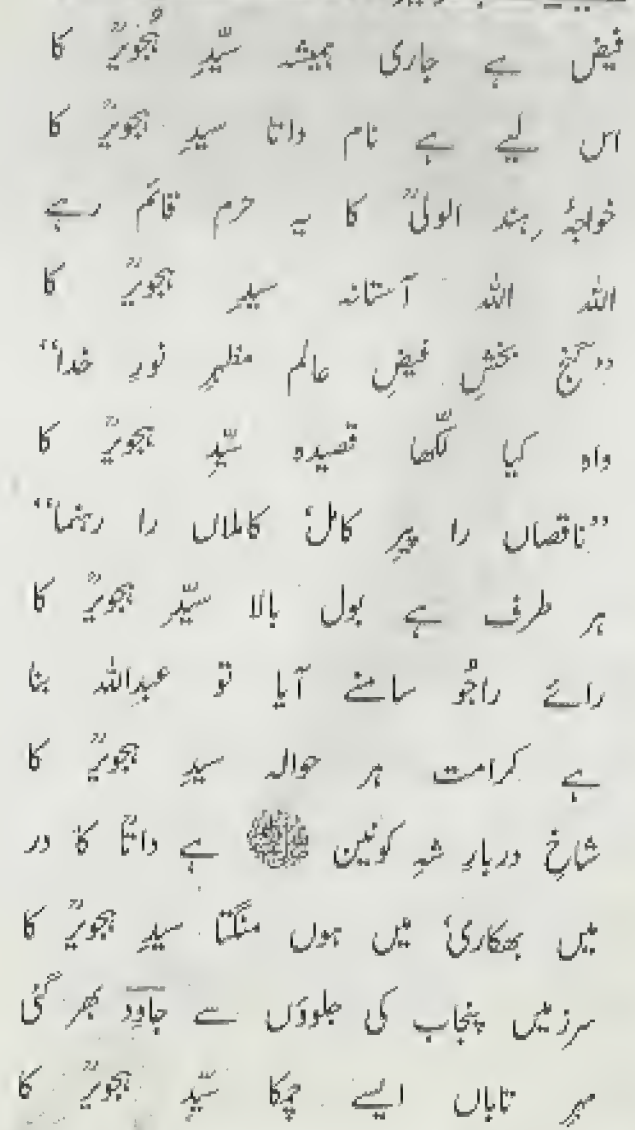 فیض ہے جاری ہمیشہ سیّدِ ہُجویرؒ کا
اس لیے ہے نام داتا سیدِ ہجویرؒ کا
خواجۂ ہند الولیؒ کا یہ حرم قائم رہے
اللہ اللہ آستانہ سیدِ ہجویرؒ کا
”گنج بخشِ فیضِ عالم مظہرِ نورِ خدا“
واہ کیا لکّھا قصیدہ سیّدِ ہجویرؒ کا
”ناقصاں را پیرِ کامل، کاملاں را رہنما“
ہر طرف ہے بول بالا سیّدِ ہجویرؒ کا
رائے راجُو سامنے آیا تو عبداللہ بنا
ہے کرامت ہر حوالہ سیدِ ہجویرؒ کا
شاخِ دربارِ شہِ کونین ﷺ ہے داتاؒ کا در
میں بھکاری، میں ہوں منگتا سیدِ ہجویرؒ کا
سرزمیں پنجاب کی جلوؤں سے جاوِد بھر گئی
مہرِ تاباں ایسے چمکا سیّدِ ہجویرؒ کا